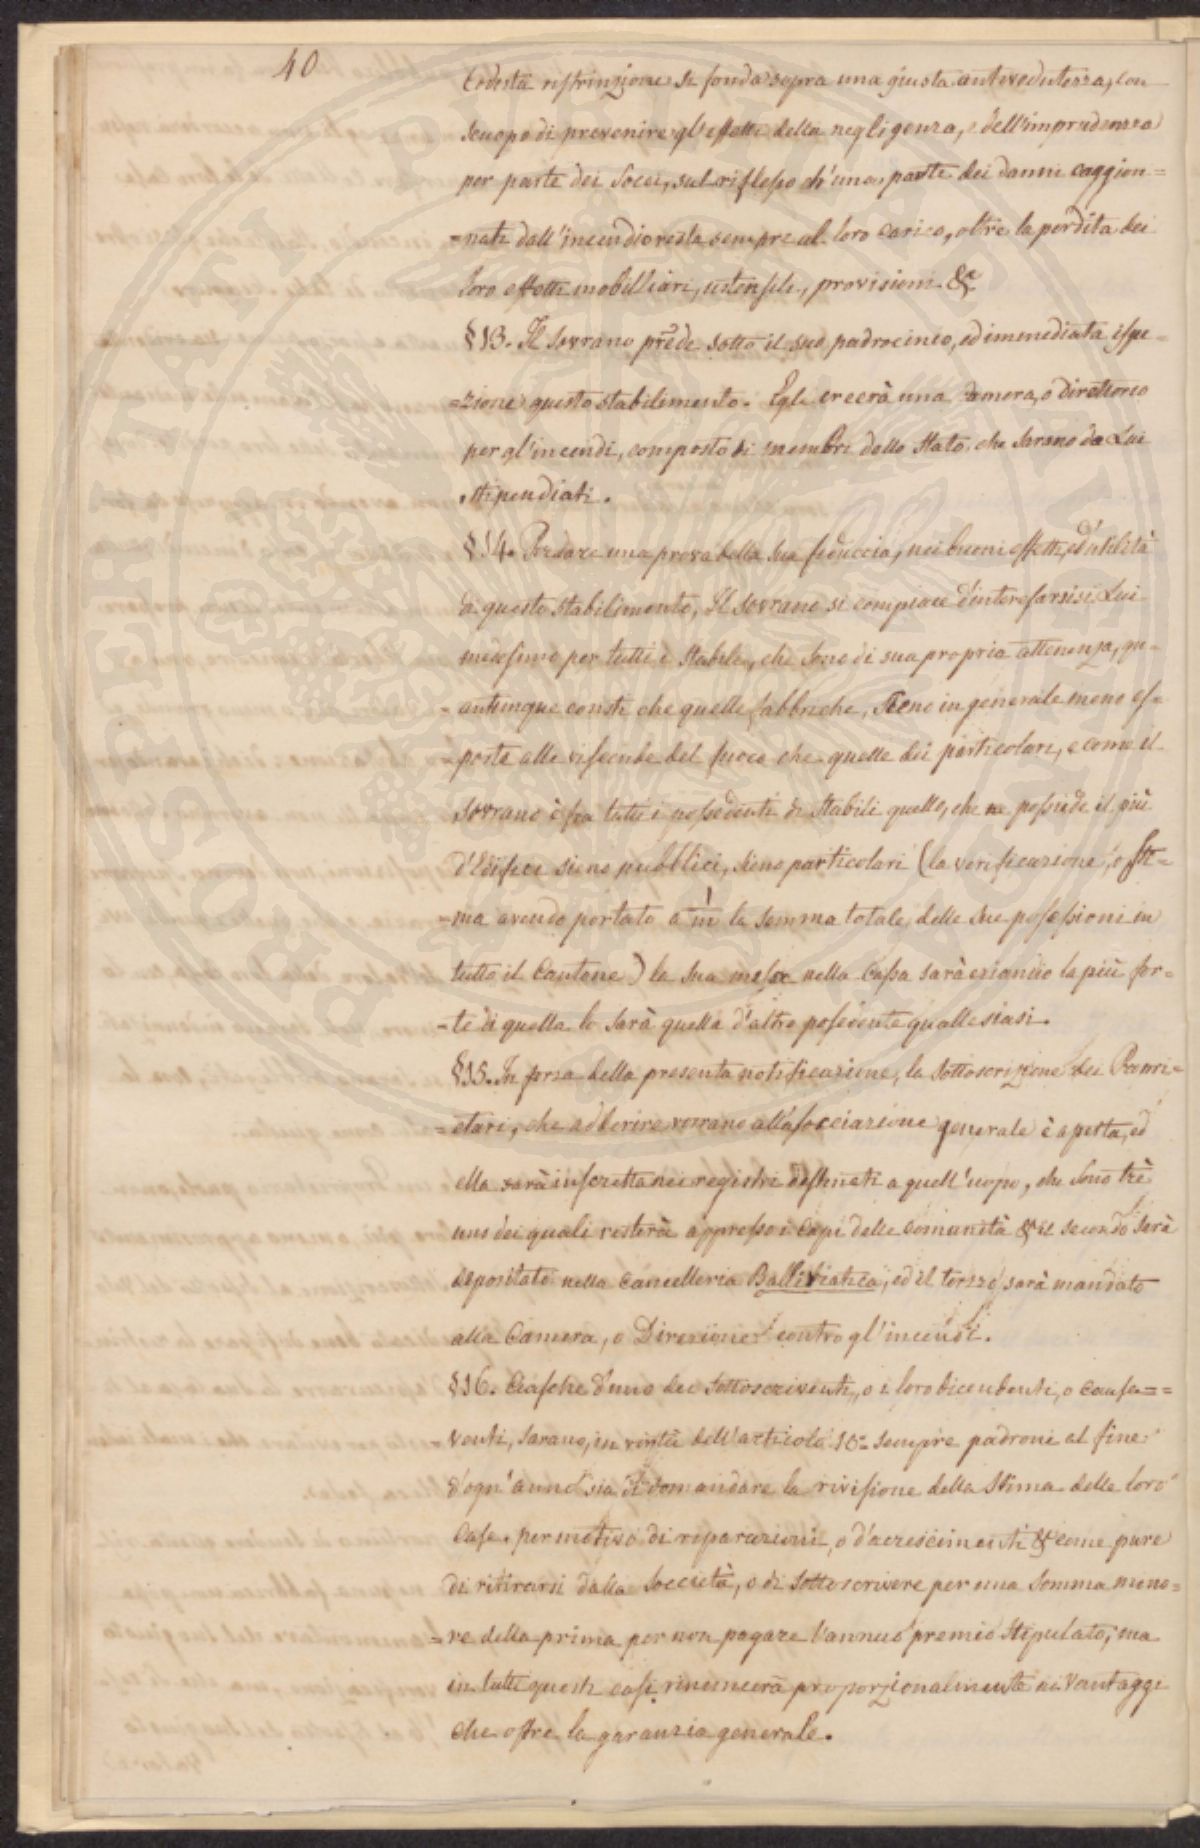 40
Codesta ristrinzione si fonda sopra una giusta antivedutezza, con
scuopo di prevenire gl'effetti della negligenza, e dell'imprudenza
per parte dei Socci, sul riflesso ch'una parte dei danni caggion=
=nati dall'incendio resta sempre al loro carico, oltre la perdita dei
loro effetti mobilliari, ustensili, provisioni &ca
§ 13. Il Sovrano prende sotto il suo padrocinio, ed immediata ispe=
=zione questo stabilimento. Egli creerà una Camera, o direttorio
per gl'incendi, composto di membri dello Stato, che sarano da Lui
stipendiati.
§ 14. Per dare una prova della sua fiduccia, nei buoni effetti, ed utilità
di questo stabilimento, Il Sovrano si compiace d'interessarsisi Lui
medesimo per tutti i Stabili, che sono di sua propria attenenza, qu=
=antunque consti che quelle fabbriche, sieno in generale meno es=
=poste alle vicende del fuoco che quelle dei particolari, e come il
Sovrano è fra tutti i possedenti di Stabili quello, che ne possiede il più
d'Edifici sieno pubblici, sieno particolari (la verificazione, o sti=
=ma avendo portato a 1/m la somma totale delle sue possessioni in
tutto il Cantone) la sua messa nella Cassa sarà eziandio la più for=
=te di quella lo sarà quella d'altro possedente qualle siasi.
§ 15. In forza della presente notificazione, la sottoscrizione dei Propri=
=etari, che adherire vorrano all'associazione generale è aperta, ed
ella sarà inscretta nei registri destinati a quell'uopo, che sono trè
uno dei quali resterà appresso i Capi delle comunità & il secondo sarà
depositato nella Cancelleria Ballivialica, ed il terzo sarà mandato
alla Camera, o Direzione contro gl'incendi.
§ 16. Ciascheduno dei sottoscriventi, o i loro dicendenti, o causa==
venti, sarano, in virtù dell'articolo 10. sempre padroni al fine
d'ogn'anno sia di domandare la rivisione della Stima delle loro
Case, per motivo di riparazioni, o d'acrescimenti & come pure
di ritirarsi dalla Soccietà, o di sottoscrivere per una somma mino=
=re della prima per non pagare l'annuo premio stipulato; ma
in tutti questi casi rinuncierà proporzionalmente ai Vantaggi
che offre la garanzia generale.